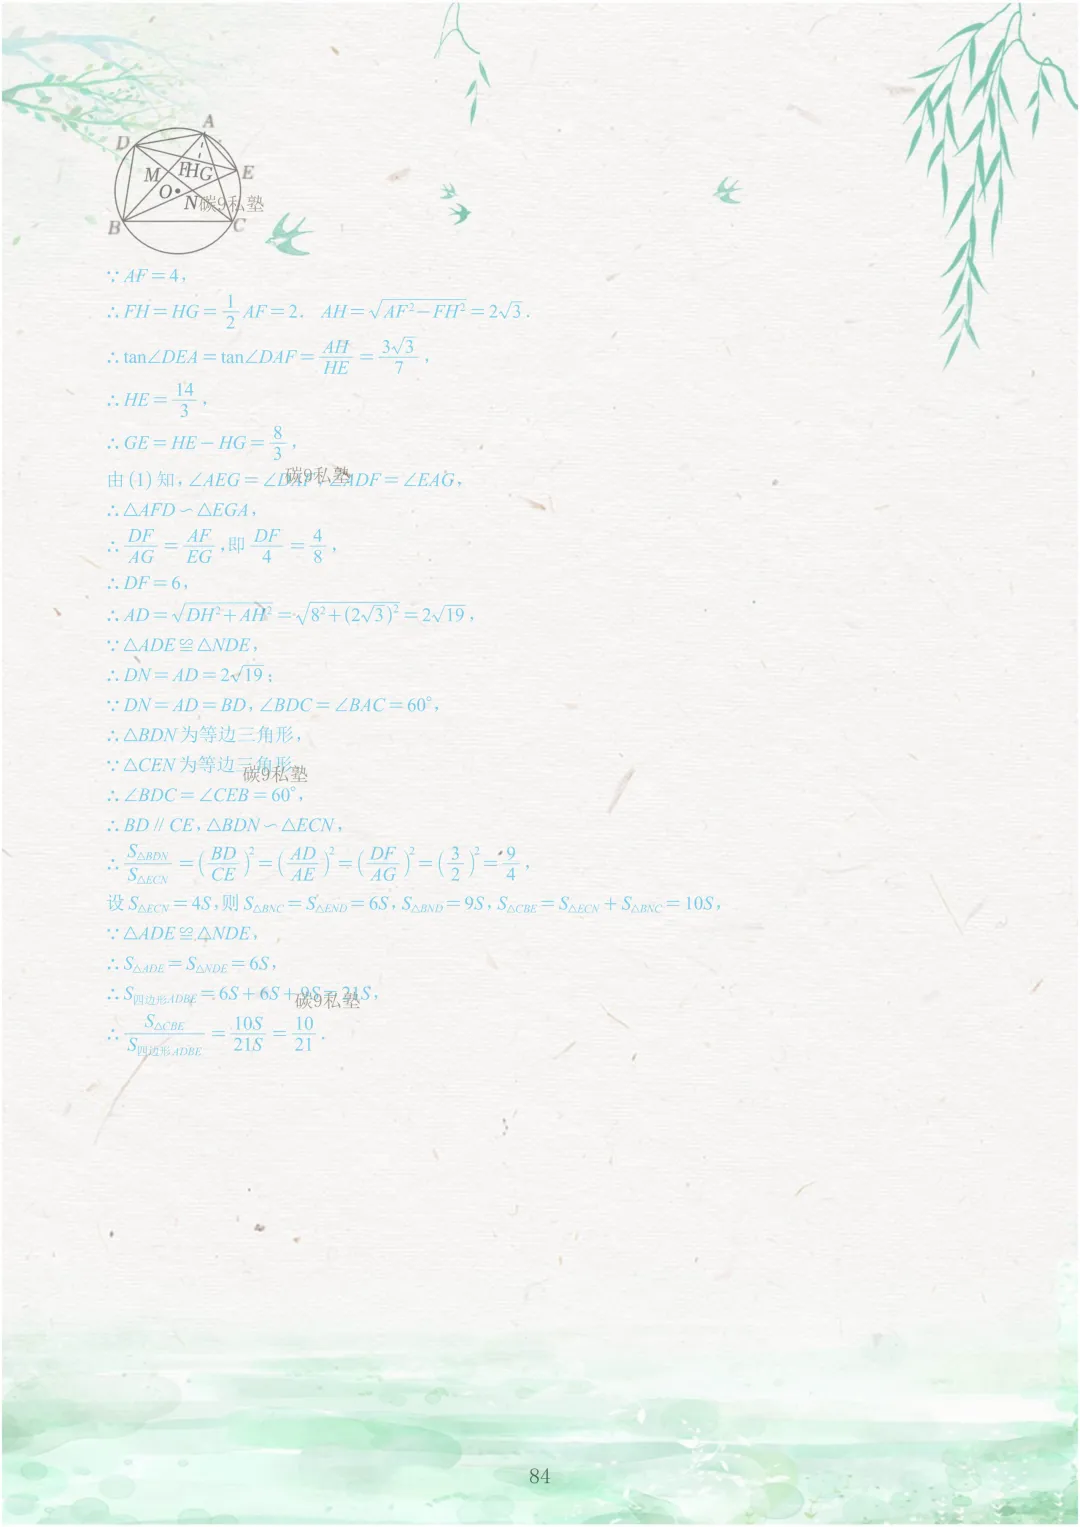 A
D
E
M
F
H
G
O
N
碳9私塾
B
C
∵AF=4,
∴FH=HG=1/2 AF=2. AH=√(AF²-FH²)=2√3.
∴tan∠DEA=tan∠DAF=AH/HE=3√3/7,
∴HE=14/3,
∴GE=HE-HG=8/3,
由(1)知,∠AEG=∠DAF,∠ADF=∠EAG,
碳9私塾
∴△AFD∽△EGA,
∴DF/AG=AF/EG,即DF/4=4/8,
∴DF=6,
∴AD=√(DH²+AH²)=√(8²+(2√3)²)=2√19,
∵△ADE≌△NDE,
∴DN=AD=2√19;
∵DN=AD=BD,∠BDC=∠BAC=60°,
∴△BDN为等边三角形,
∵△CEN为等边三角形
碳9私塾
∴∠BDC=∠CEB=60°,
∴BD∥CE,△BDN∽△ECN,
∴S△BDN/S△ECN=(BD/CE)²=(AD/AE)²=(DF/AG)²=(3/2)²=9/4,
设S△ECN=4S,则S△BNC=S△END=6S,S△BND=9S,S△CBE=S△ECN+S△BNC=10S,
∵△ADE≌△NDE,
∴S△ADE=S△NDE=6S,
∴S四边形ADBE=6S+6S+9S=21S,
碳9私塾
∴S△CBE/S四边形ADBE=10S/21S=10/21.
84